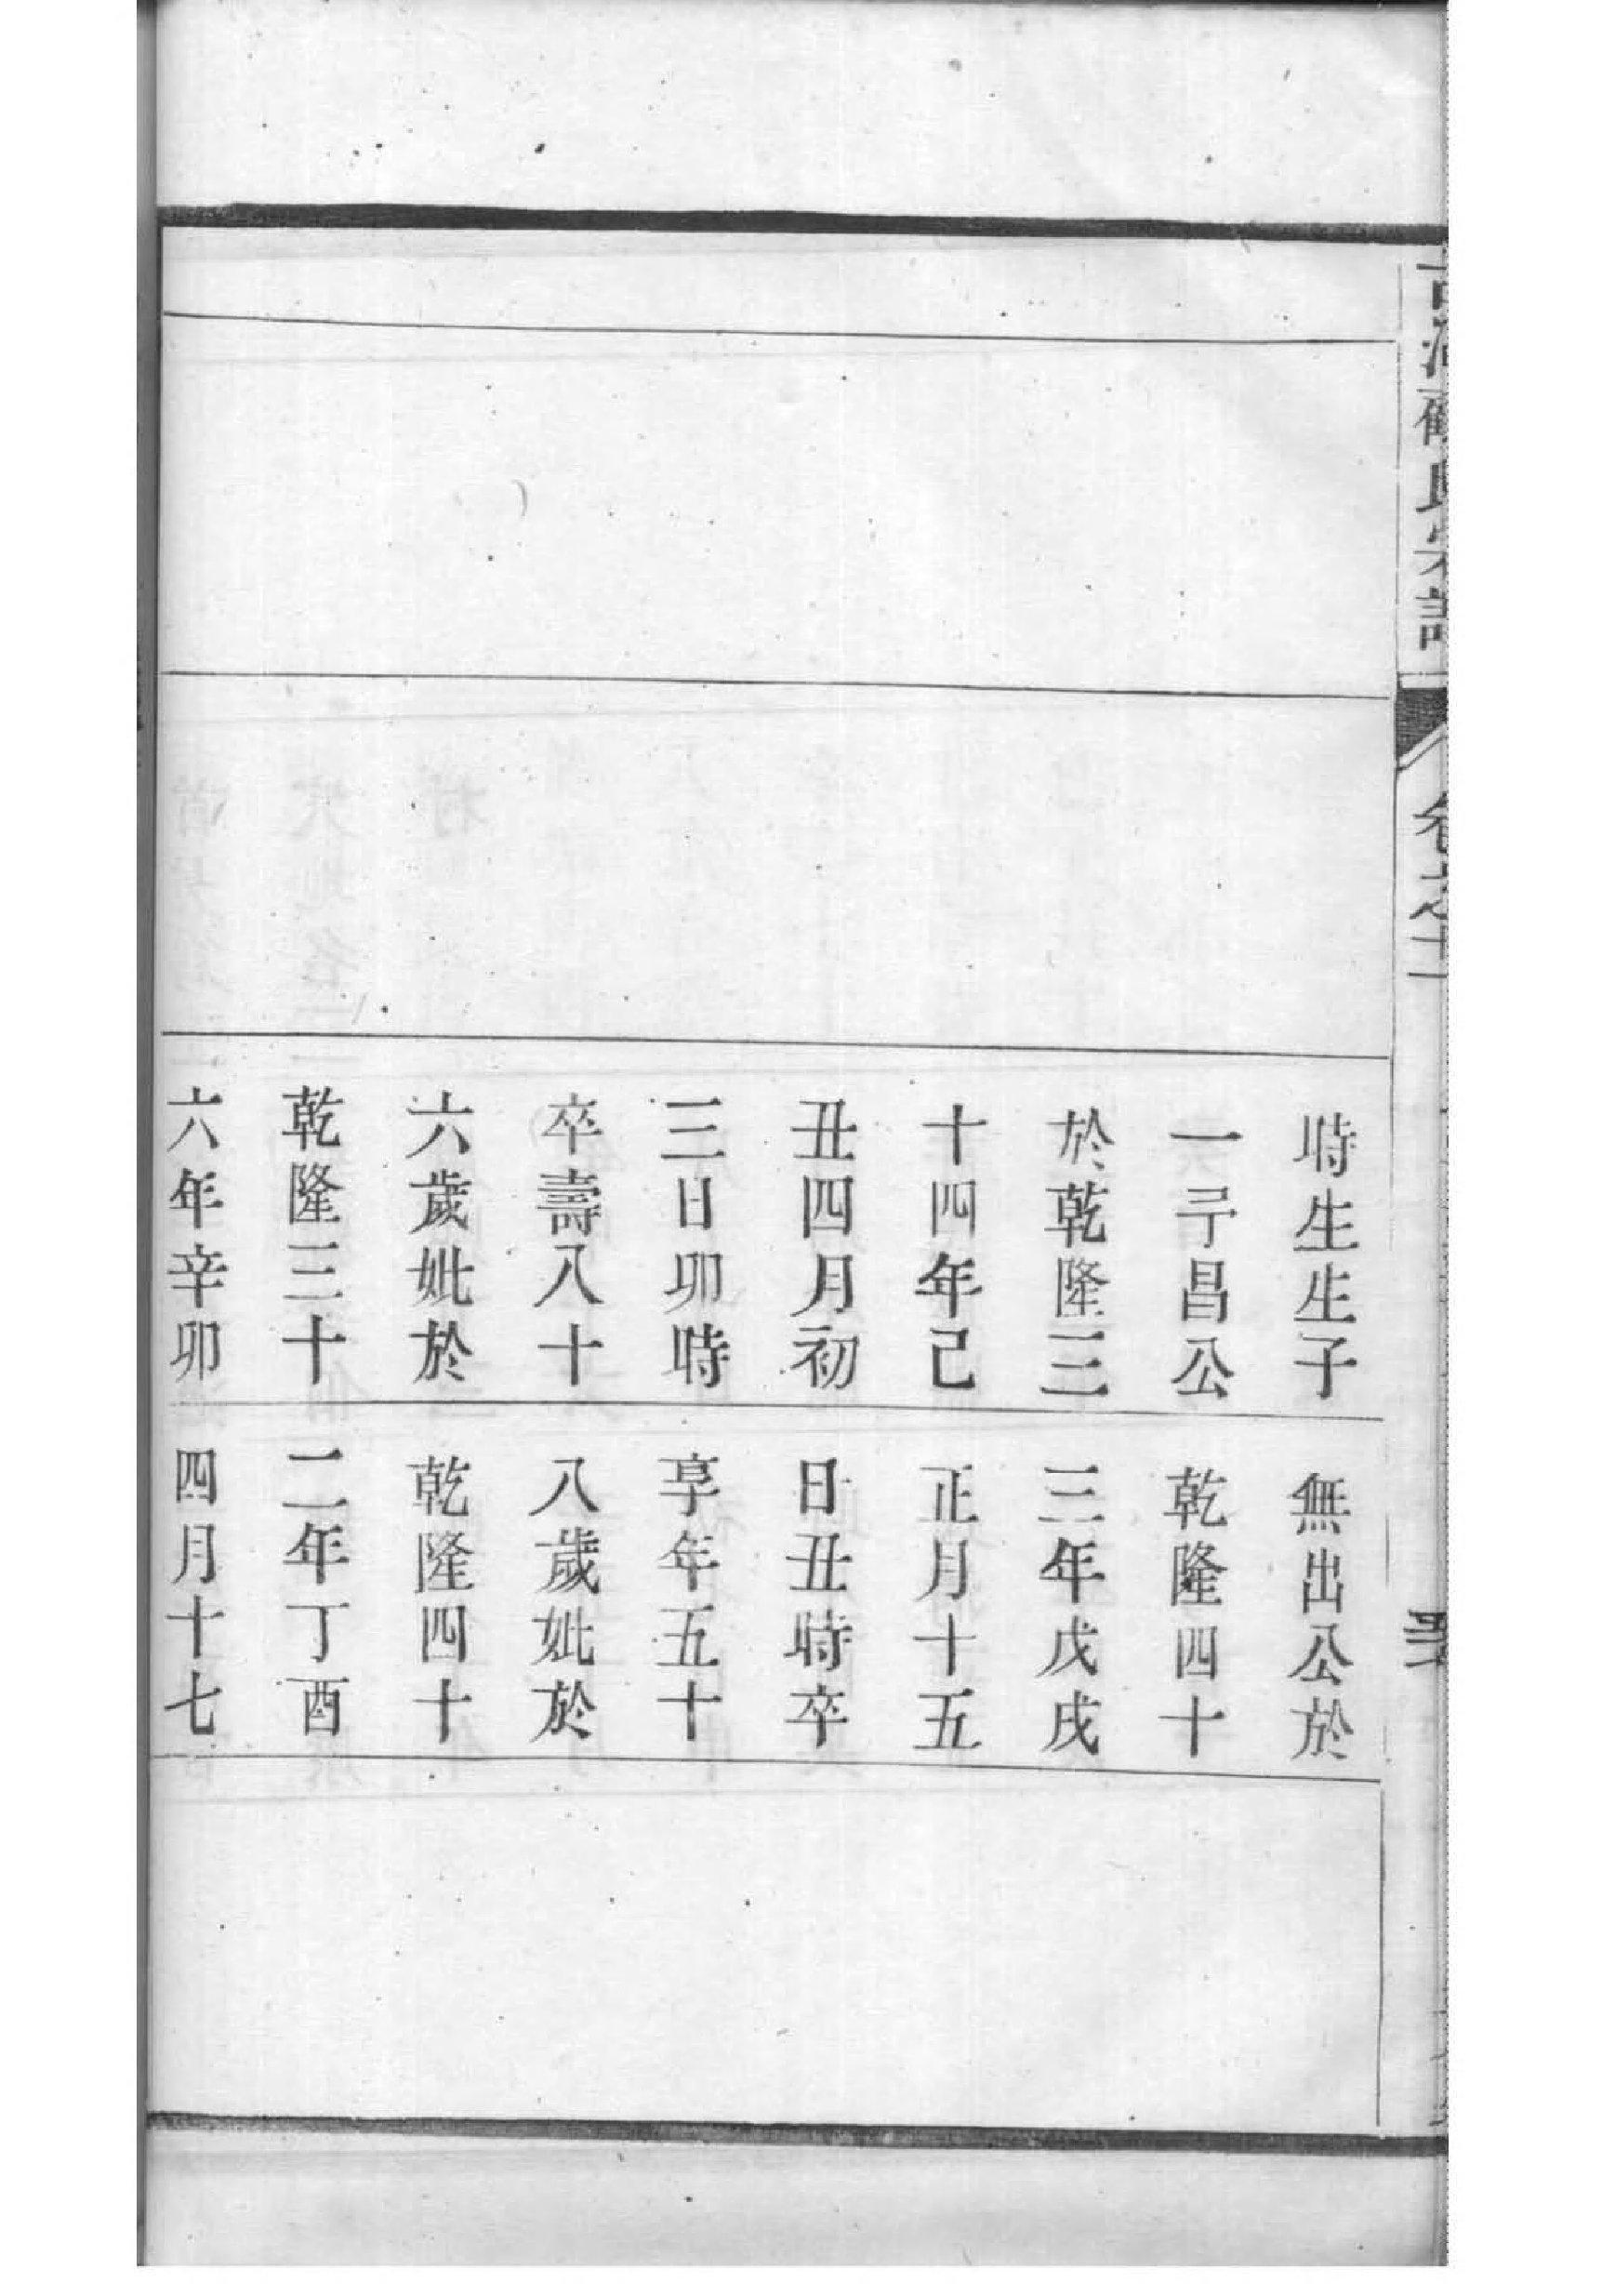 氏宗譜
卷之十
時生生子
一 昌公
於乾隆三
十四年己
丑四月初
三日卯時
卒壽八十
六歲妣於
乾隆三十
六年辛卯
無出公於
乾隆四十
三年戊戌
正月十五
日丑時卒
享年五十
八歲妣於
乾隆四十
二年丁酉
四月十七